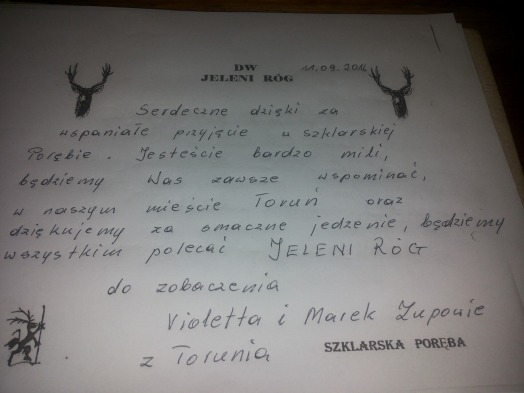 DW 11.09.2016
JELENI RÓG
Serdeczne dzięki za
wspaniałe przyjęcie w szklarskiej
Porębie. Jesteście bardzo mili,
będziemy Was zawsze wspominać,
w naszym mieście Toruń oraz
dziękujemy za smaczne jedzenie, będziemy
wszystkim polecać JELENI RÓG
do zobaczenia
Violetta i Marek Zuponie
z Torunia
SZKLARSKA PORĘBA